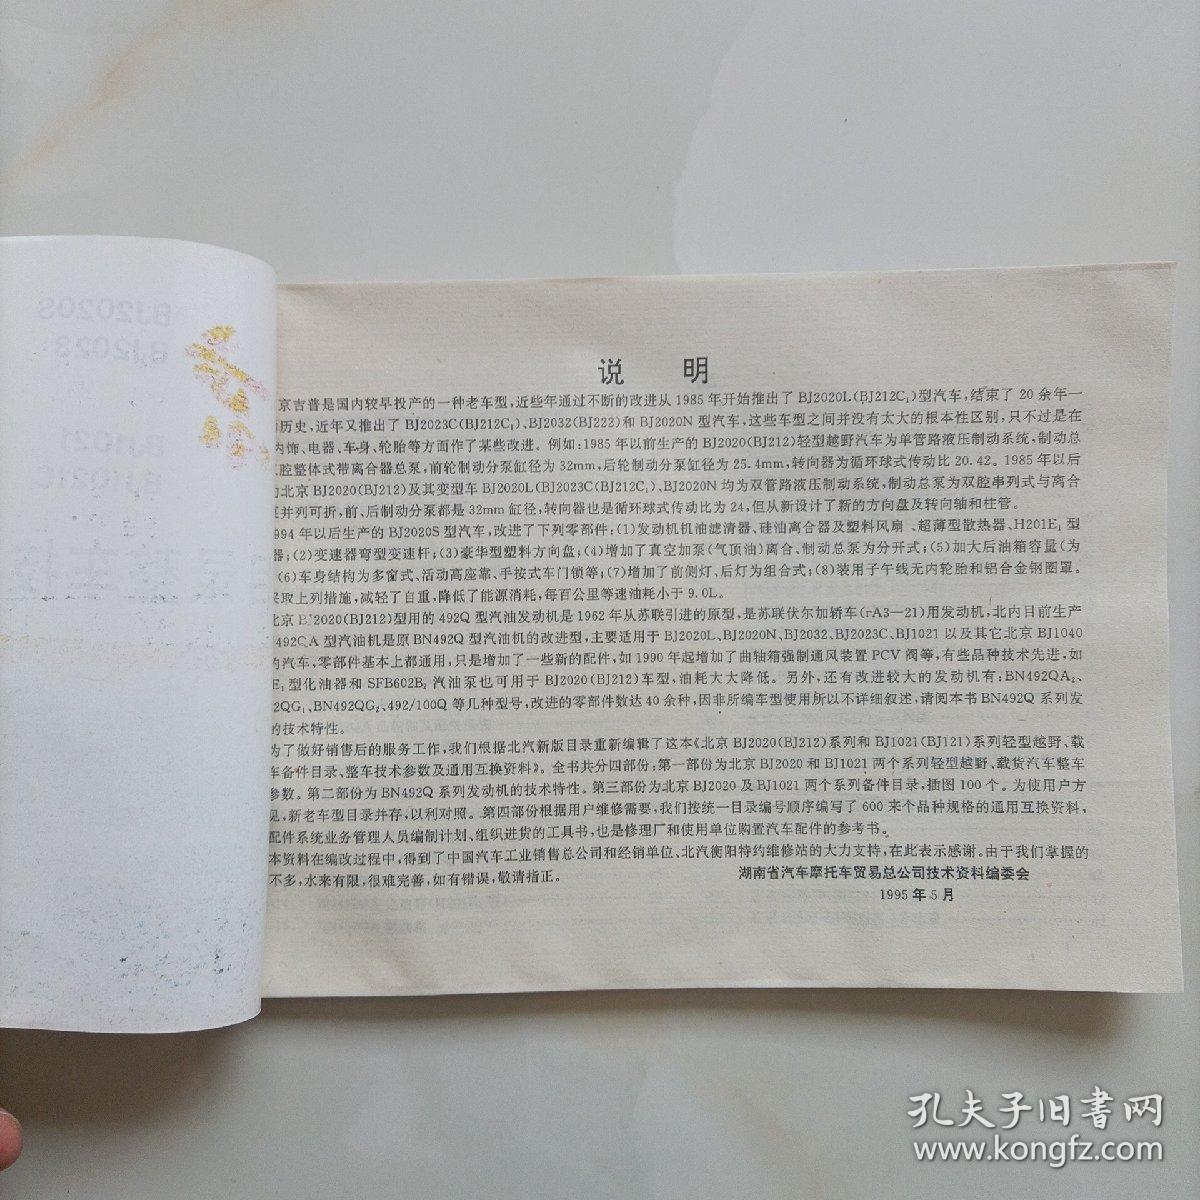 BJ2020S
BJ2023
BJ1021
BJ1021C
说 明
京吉普是国内较早投产的一种老车型,近些年通过不断的改进从1985年开始推出了BJ2020L(BJ212C₁)型汽车,结束了20余年一
历史,近年又推出了BJ2023C(BJ212C₁)、BJ2032(BJ222)和BJ2020N型汽车,这些车型之间并没有太大的根本性区别,只不过是在
内饰、电器、车身、轮胎等方面作了某些改进。例如:1985年以前生产的BJ2020(BJ212)轻型越野汽车为单管路液压制动系统,制动总
腔整体式带离合器总泵,前轮制动分泵缸径为32mm,后轮制动分泵缸径为25.4mm,转向器为循环球式传动比20.42。1985年以后
北京BJ2020(BJ212)及其变型车BJ2020L(BJ2023C(BJ212C₁)、BJ2020N均为双管路液压制动系统,制动总泵为双腔串列式与离合
并列可折,前、后制动分泵都是32mm缸径,转向器也是循环球式传动比为24,但从新设计了新的方向盘及转向轴和柱管。
994年以后生产的BJ2020S型汽车,改进了下列零部件:(1)发动机机油滤清器、硅油离合器及塑料风扇、超薄型散热器、H201E₁型
器;(2)变速器弯型变速杆;(3)豪华型塑料方向盘;(4)增加了真空加泵(气顶油)离合、制动总泵为分开式;(5)加大后油箱容量(为
(6)车身结构为多窗式、活动高座靠、手按式车门锁等;(7)增加了前侧灯、后灯为组合式;(8)装用子午线无内轮胎和铝合金钢圈罩。
采取上列措施,减轻了自重,降低了能源消耗,每百公里等速油耗小于9.0L。
北京BJ2020(BJ212)型用的492Q型汽油发动机是1962年从苏联引进的原型,是苏联伏尔加轿车(rA3—21)用发动机,北内目前生产
492QA型汽油机是原BN492Q型汽油机的改进型,主要适用于BJ2020L、BJ2020N、BJ2032、BJ2023C、BJ1021以及其它北京BJ1040
的汽车,零部件基本上都通用,只是增加了一些新的配件,如1990年起增加了曲轴箱强制通风装置PCV阀等,有些品种技术先进,如
E₁型化油器和SFB602B₂汽油泵也可用于BJ2020(BJ212)车型,油耗大大降低。另外,还有改进较大的发动机有:BN492QA₂、
2QG₁、BN492QG₂、492/100Q等几种型号,改进的零部件数达40余种,因非所编车型使用所以不详细叙述,请阅本书BN492Q系列发
的技术特性。
为了做好销售后的服务工作,我们根据北汽新版目录重新编辑了这本《北京BJ2020(BJ212)系列和BJ1021(BJ121)系列轻型越野、载
车备件目录、整车技术参数及通用互换资料》。全书共分四部份:第一部份为北京BJ2020和BJ1021两个系列轻型越野、载货汽车整车
参数。第二部份为BN492Q系列发动机的技术特性。第三部份为北京BJ2020及BJ1021两个系列备件目录,插图100个。为使用户方
见,新老车型目录并存,以利对照。第四部份根据用户维修需要,我们按统一目录编号顺序编写了600来个品种规格的通用互换资料,
配件系统业务管理人员编制计划、组织进货的工具书,也是修理厂和使用单位购置汽车配件的参考书。
本资料在编改过程中,得到了中国汽车工业销售总公司和经销单位、北汽衡阳特约维修站的大力支持,在此表示感谢。由于我们掌握的
不多,水来有限,很难完善,如有错误,敬请指正。
湖南省汽车摩托车贸易总公司技术资料编委会
1995年5月
孔夫子旧书网
www.kongfz.com